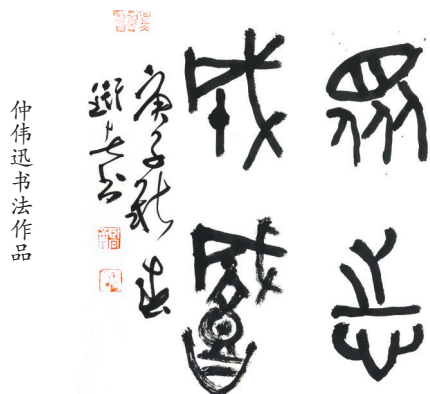 眾志
成城
庚子秋
仲伟迅书法作品